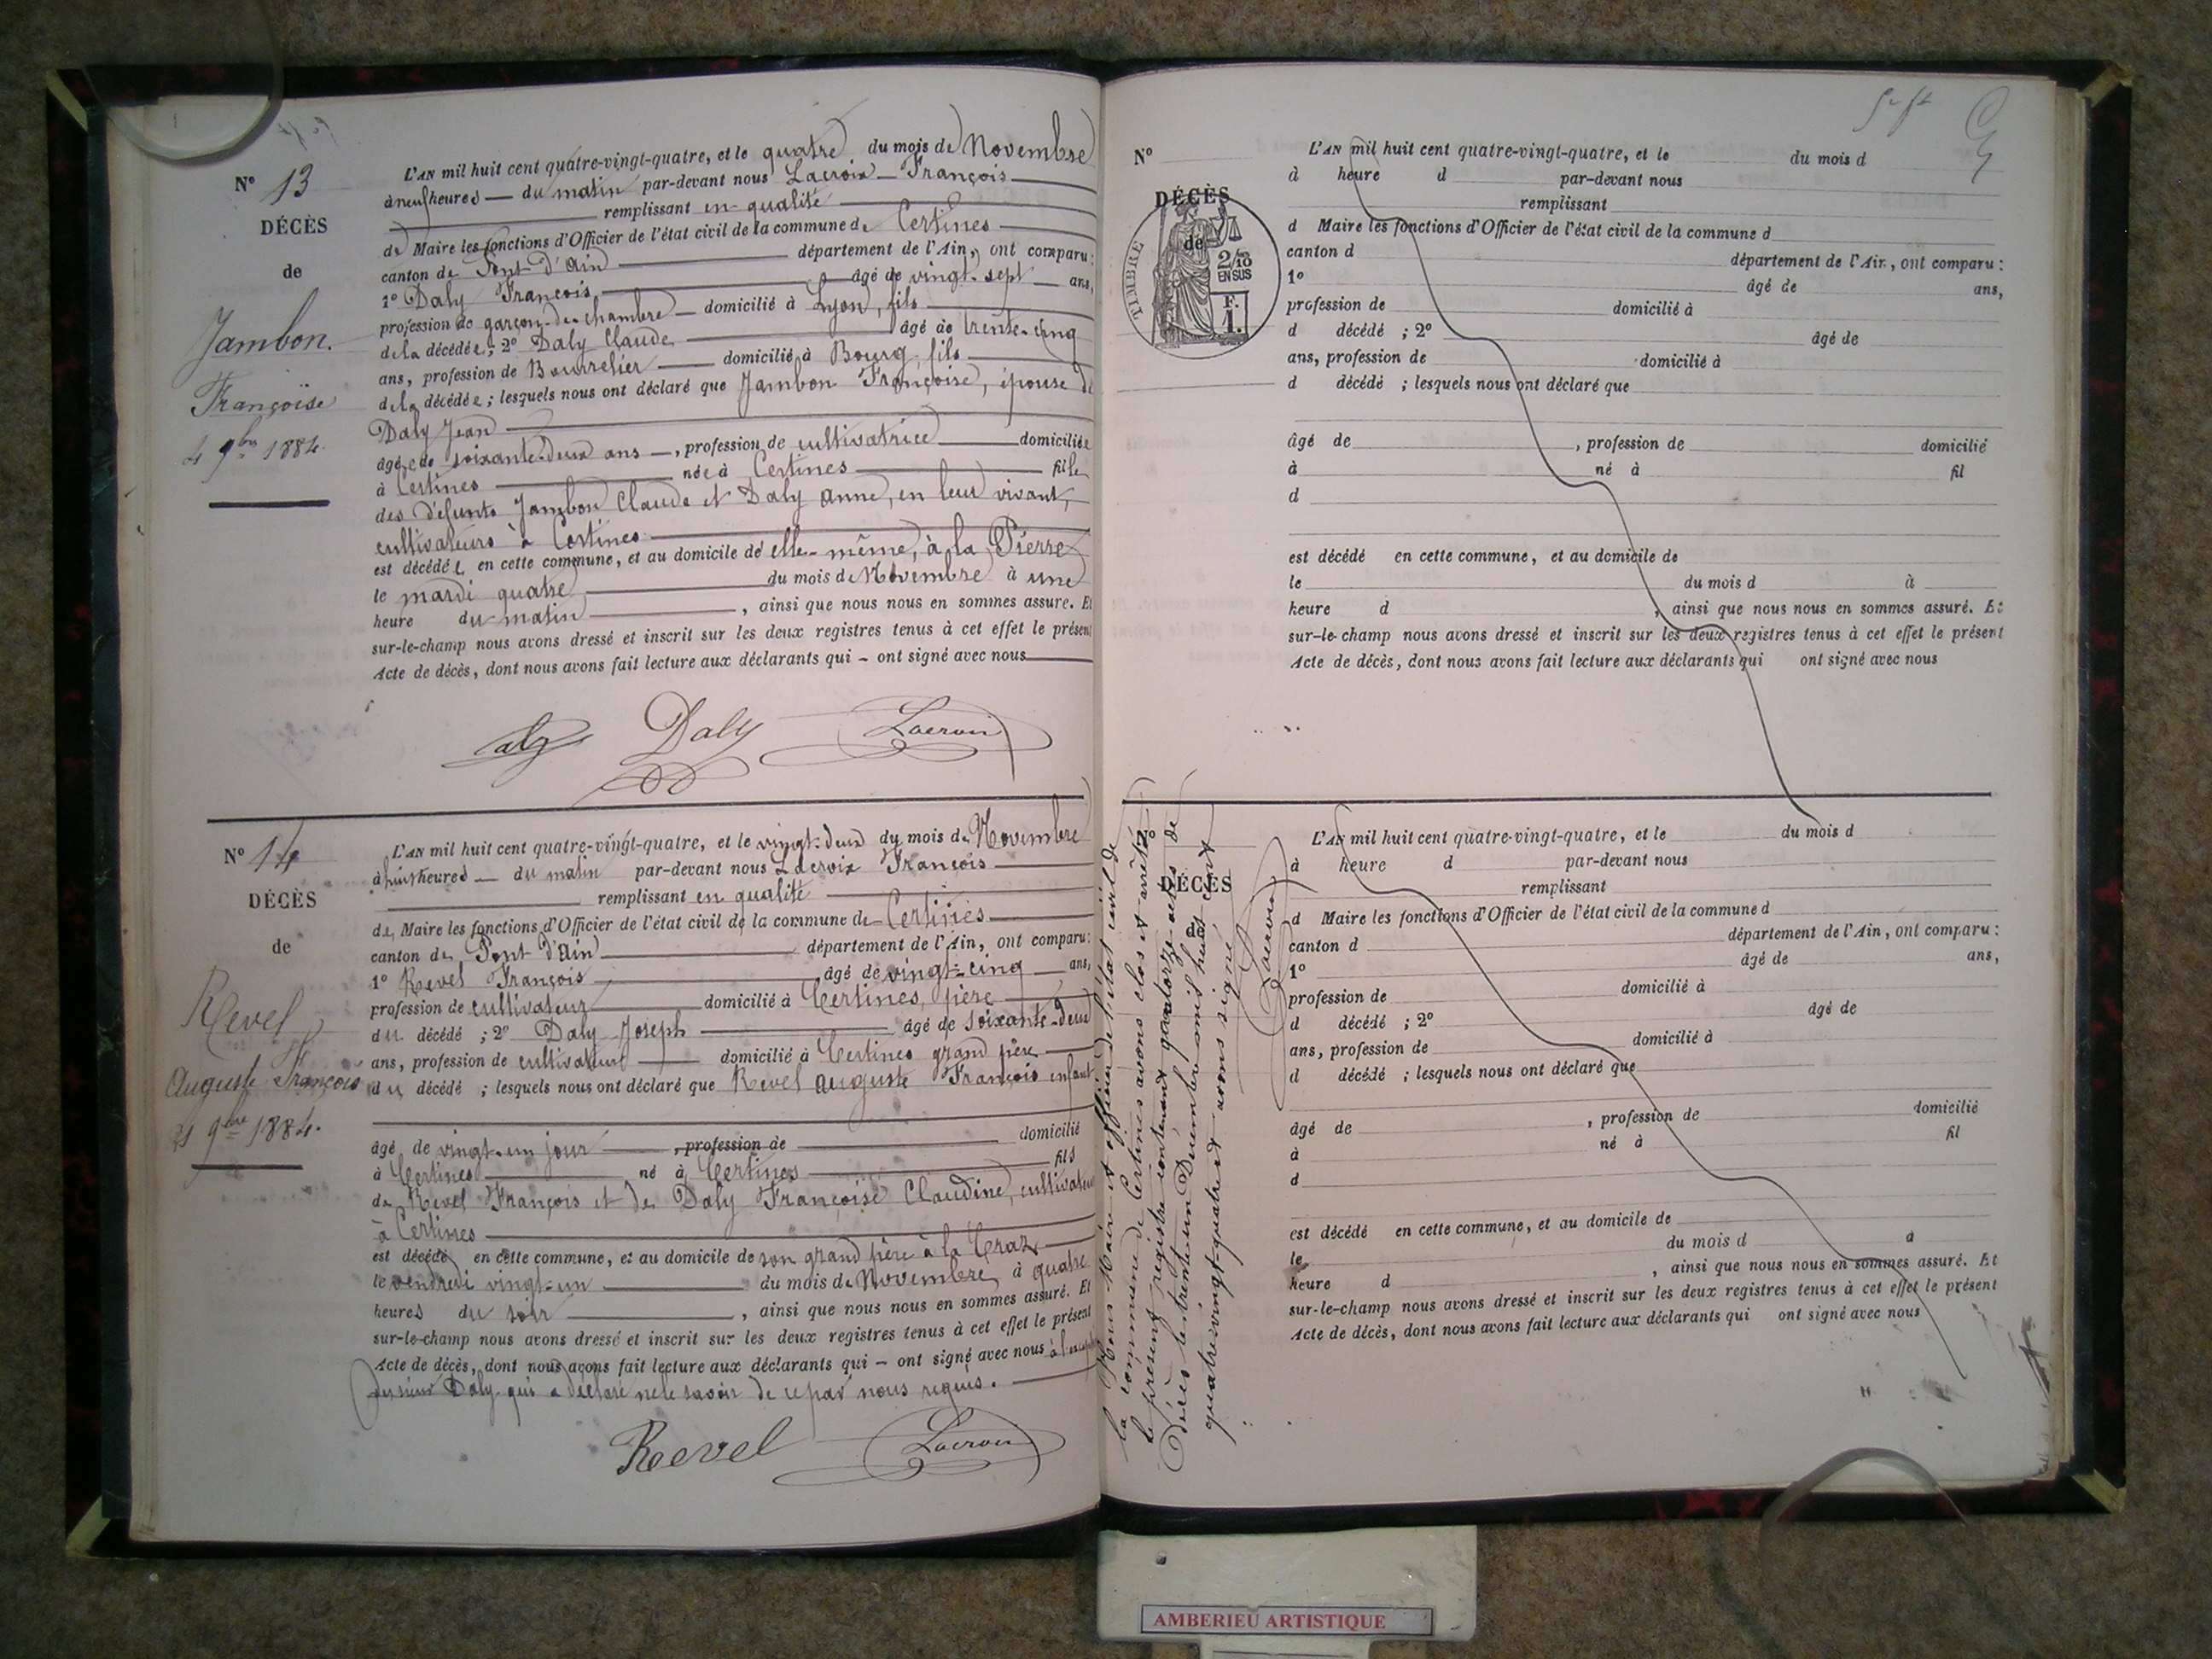 N° 13
DÉCÈS
de
Jambon.
Françoise
4 9bre 1884.
L'AN mil huit cent quatre-vingt-quatre, et le quatre du mois de Novembre
à neuf heures — du matin par-devant nous Lacroix François
remplissant en qualité
de Maire les fonctions d'Officier de l'état civil de la commune de Certines
canton de Pont d'Ain département de l'Ain, ont comparu:
1° Daly François âgé de vingt-sept ans,
profession de garçon de chambre domicilié à Lyon, fils
de la décédée; 2° Daly Claude âgé de trente-cinq
ans, profession de Bourrelier domicilié à Bourg fils
de la décédée; lesquels nous ont déclaré que Jambon Françoise, épouse de
Daly Jean
âgée de soixante-deux ans, profession de cultivatrice domiciliée
à Certines née à Certines fille
des défunts Jambon Claude et Daly Anne, en leur vivant,
cultivateurs à Certines
est décédée en cette commune, et au domicile de elle-même, à la Pierre
le mardi quatre du mois de Novembre à une
heure du matin, ainsi que nous nous en sommes assuré. Et
sur-le-champ nous avons dressé et inscrit sur les deux registres tenus à cet effet le présent
Acte de décès, dont nous avons fait lecture aux déclarants qui – ont signé avec nous
Daly Daly Lacroix
N° 14
DÉCÈS
de
Revel
Auguste François
21 9bre 1884.
L'AN mil huit cent quatre-vingt-quatre, et le vingt-deux du mois de Novembre
à huit heures — du matin par-devant nous Lacroix François
remplissant en qualité
de Maire les fonctions d'Officier de l'état civil de la commune de Certines
canton de Pont d'Ain département de l'Ain, ont comparu:
1° Revel François âgé de vingt-cinq ans,
profession de cultivateur domicilié à Certines, père
du décédé ; 2° Daly Joseph âgé de soixante-deux
ans, profession de cultivateur domicilié à Certines grand père
du décédé ; lesquels nous ont déclaré que Revel Auguste François enfant
âgé de vingt-un jour, profession de domicilié
à Certines né à Certines fils
de Revel François et de Daly Françoise Claudine, cultivateurs
à Certines
est décédé en cette commune, et au domicile de son grand père à la Craz
le vendredi vingt-un du mois de Novembre à quatre
heures du soir, ainsi que nous nous en sommes assuré. Et
sur-le-champ nous avons dressé et inscrit sur les deux registres tenus à cet effet le présent
Acte de décès, dont nous avons fait lecture aux déclarants qui – ont signé avec nous à l'exception
du sieur Daly qui a déclaré ne le savoir de ce par nous requis.
Revel Lacroix
N°
DÉCÈS
de
TIMBRE
2/10 EN SUS
F. 1.
L'AN mil huit cent quatre-vingt-quatre, et le du mois d
à heure d par-devant nous
remplissant
d Maire les fonctions d'Officier de l'état civil de la commune d
canton d département de l'Ain, ont comparu :
1° âgé de ans,
profession de domicilié à
d décédé ; 2° âgé de
ans, profession de domicilié à
d décédé ; lesquels nous ont déclaré que
âgé de , profession de domicilié
à né à fil
d
est décédé en cette commune, et au domicile de
le du mois d à
heure d , ainsi que nous nous en sommes assuré. Et
sur-le-champ nous avons dressé et inscrit sur les deux registres tenus à cet effet le présent
Acte de décès, dont nous avons fait lecture aux déclarants qui ont signé avec nous
N°
DÉCÈS
de
Nous Maire et officier de l'état civil de
la commune de Certines avons clos et arrêté
le présent registre contenant quatorze actes de
Décès le trente-un Décembre mil huit cent
quatre-vingt-quatre et avons signé
Lacroix
L'AN mil huit cent quatre-vingt-quatre, et le du mois d
à heure d par-devant nous
remplissant
d Maire les fonctions d'Officier de l'état civil de la commune d
canton d département de l'Ain, ont comparu :
1° âgé de ans,
profession de domicilié à
d décédé ; 2° âgé de
ans, profession de domicilié à
d décédé ; lesquels nous ont déclaré que
âgé de , profession de domicilié
à né à fil
d
est décédé en cette commune, et au domicile de
le du mois d à
heure d , ainsi que nous nous en sommes assuré. Et
sur-le-champ nous avons dressé et inscrit sur les deux registres tenus à cet effet le présent
Acte de décès, dont nous avons fait lecture aux déclarants qui ont signé avec nous
AMBERIEU ARTISTIQUE